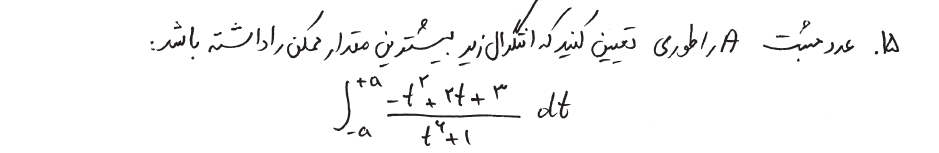 ۱۵. عدد مثبت A را طوری تعیین کنید که انتگرال زیر بیشترین مقدار ممکن را داشته باشد:
∫_{-a}^{+a} \frac{-t^۲+۲t+۳}{t^۲+۱} dt